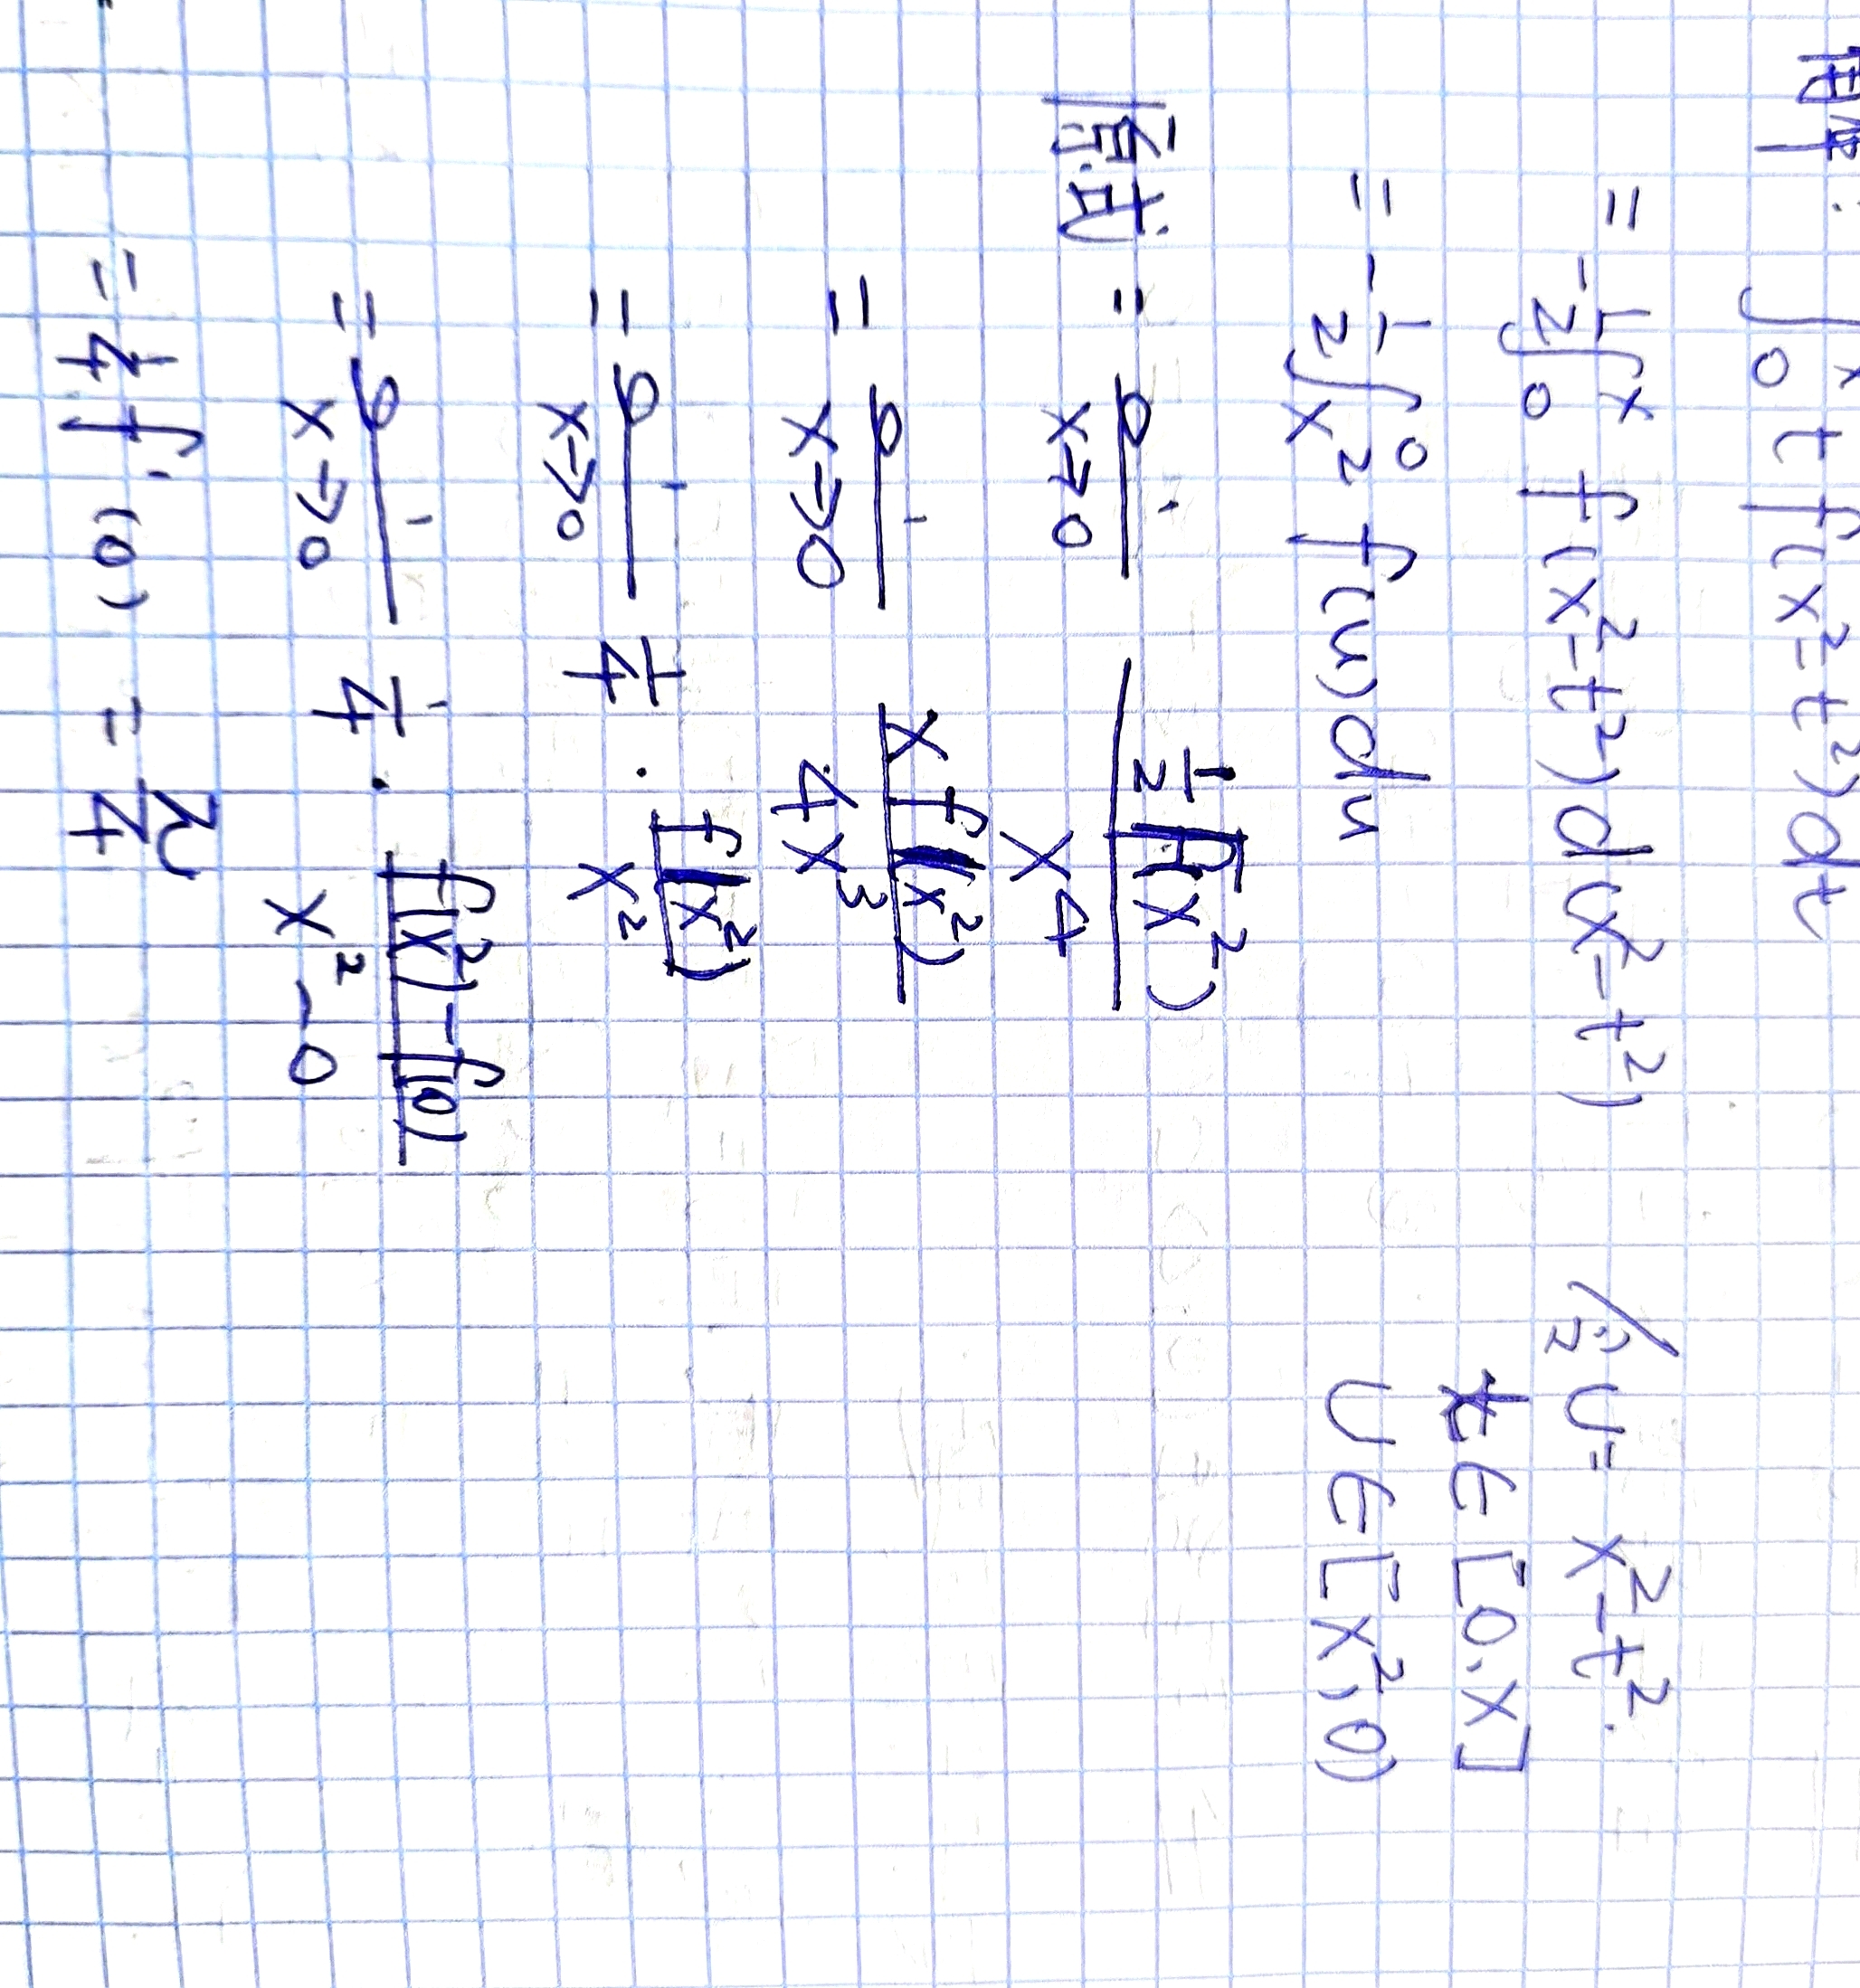 解: ∫₀ˣ t f(x²-t²)dt
= -1/2 ∫₀ˣ f(x²-t²)d(x²-t²) 令 u= x²-t².
t∈[0,x]
= -1/2 ∫_{x²}^{0} f(u)du u∈[x²,0)
原式 = lim_{x→0} (1/2 F(x²))/x⁴
= lim_{x→0} (x f(x²))/(4x³)
= lim_{x→0} 1/4 · f(x²)/x²
= lim_{x→0} 1/4 · (f(x²)-f(0))/(x²-0)
= 1/4 f'(0) = π/4